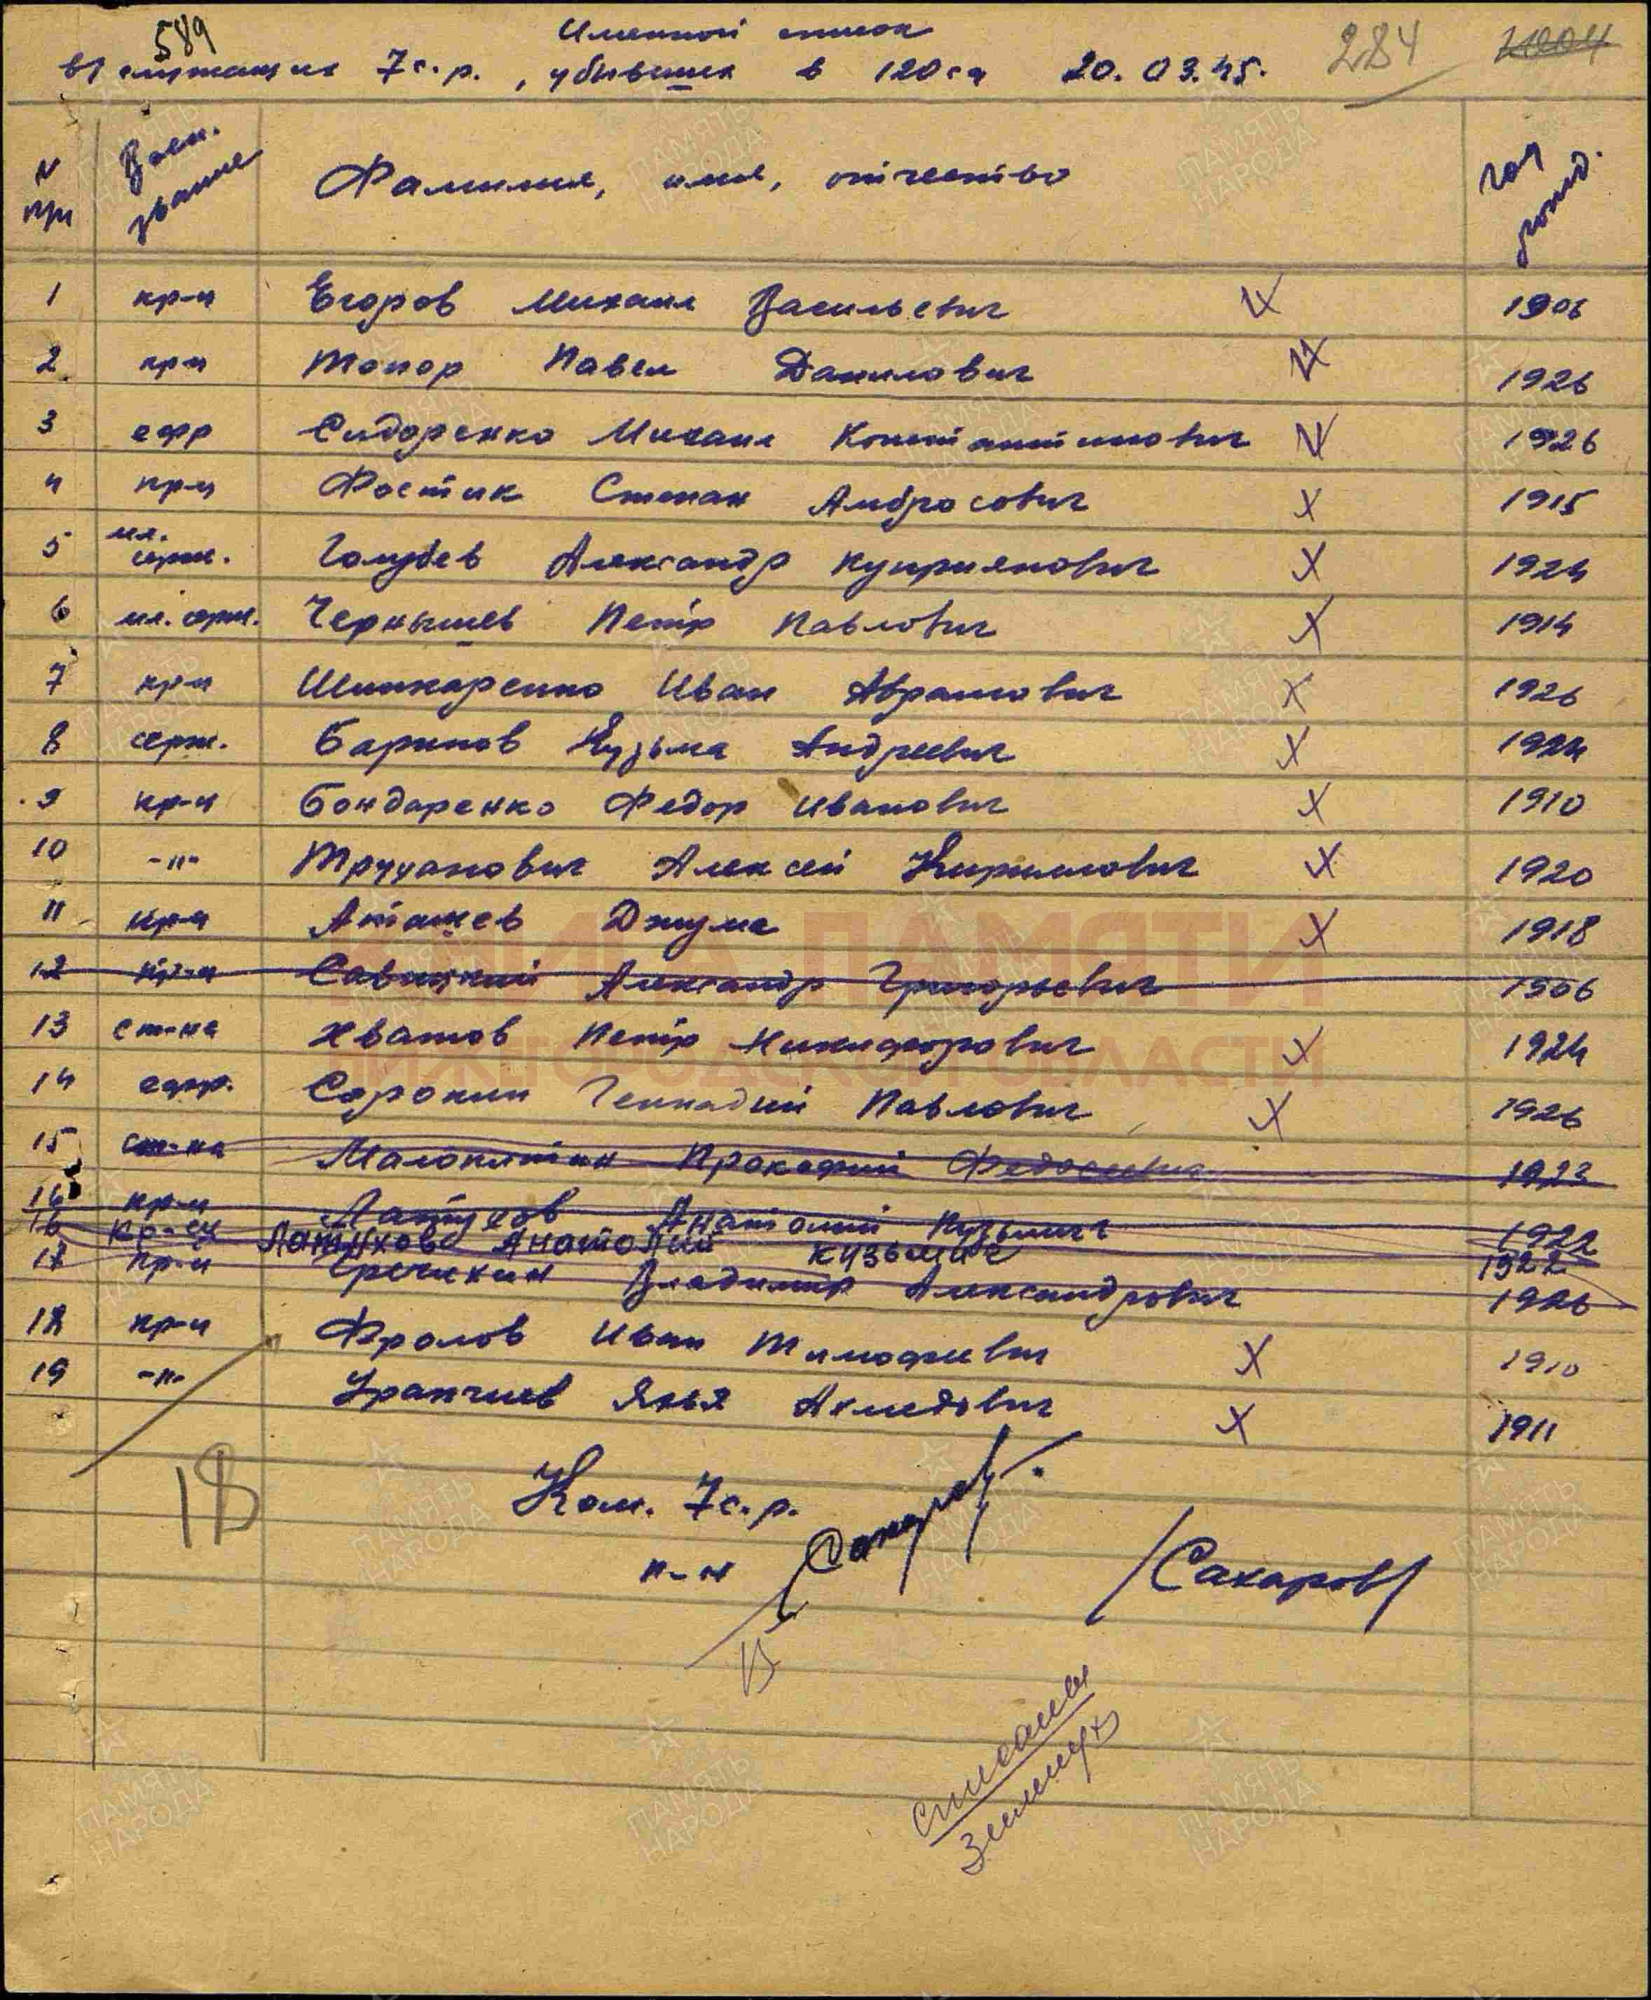 589
Именной список
в/служащих 7 с.р., убывших в 120 сд 20.03.45. 284 21004
N п/п Воен. звание Фамилия, имя, отчество год рожд.
1 кр-ц Егоров Михаил Васильевич 1906
2 кр-ц Топор Павел Данилович 1926
3 ефр Сидоренко Михаил Константинович 1926
4 кр-ц Фостик Степан Амбросович 1915
5 мл. серж. Голубев Александр Куприянович 1924
6 мл. серж. Чернышев Петр Павлович 1914
7 кр-ц Шинкаренко Иван Абрамович 1926
8 серж. Баринов Кузьма Андреевич 1924
9 кр-ц Бондаренко Федор Иванович 1910
10 -"- Труханович Алексей Кириллович 1920
11 кр-ц Аташев Джума 1918
12 кр-ц Савицкий Александр Григорьевич 1906
13 ст-на Хватов Петр Никифорович 1924
14 ефр. Сорокин Геннадий Павлович 1926
15 ст-на Малопитин Прокофий Федосеевич 1923
16 кр-ц Латухов Анатолий Кузьмич 1922
16 кр-ец Латухов Анатолий Кузьмич 1922
17 кр-ц Гречихин Владимир Александрович 1926
18 кр-ц Фролов Иван Тимофеевич 1910
19 -"- Уранчиев Яхья Ахмедович 1911
18
Ком. 7 с.р.
к-н Сахаров /Сахаров/
списаны
КНИГА ПАМЯТИ
НИЖЕГОРОДСКОЙ ОБЛАСТИ
ПАМЯТЬ НАРОДА